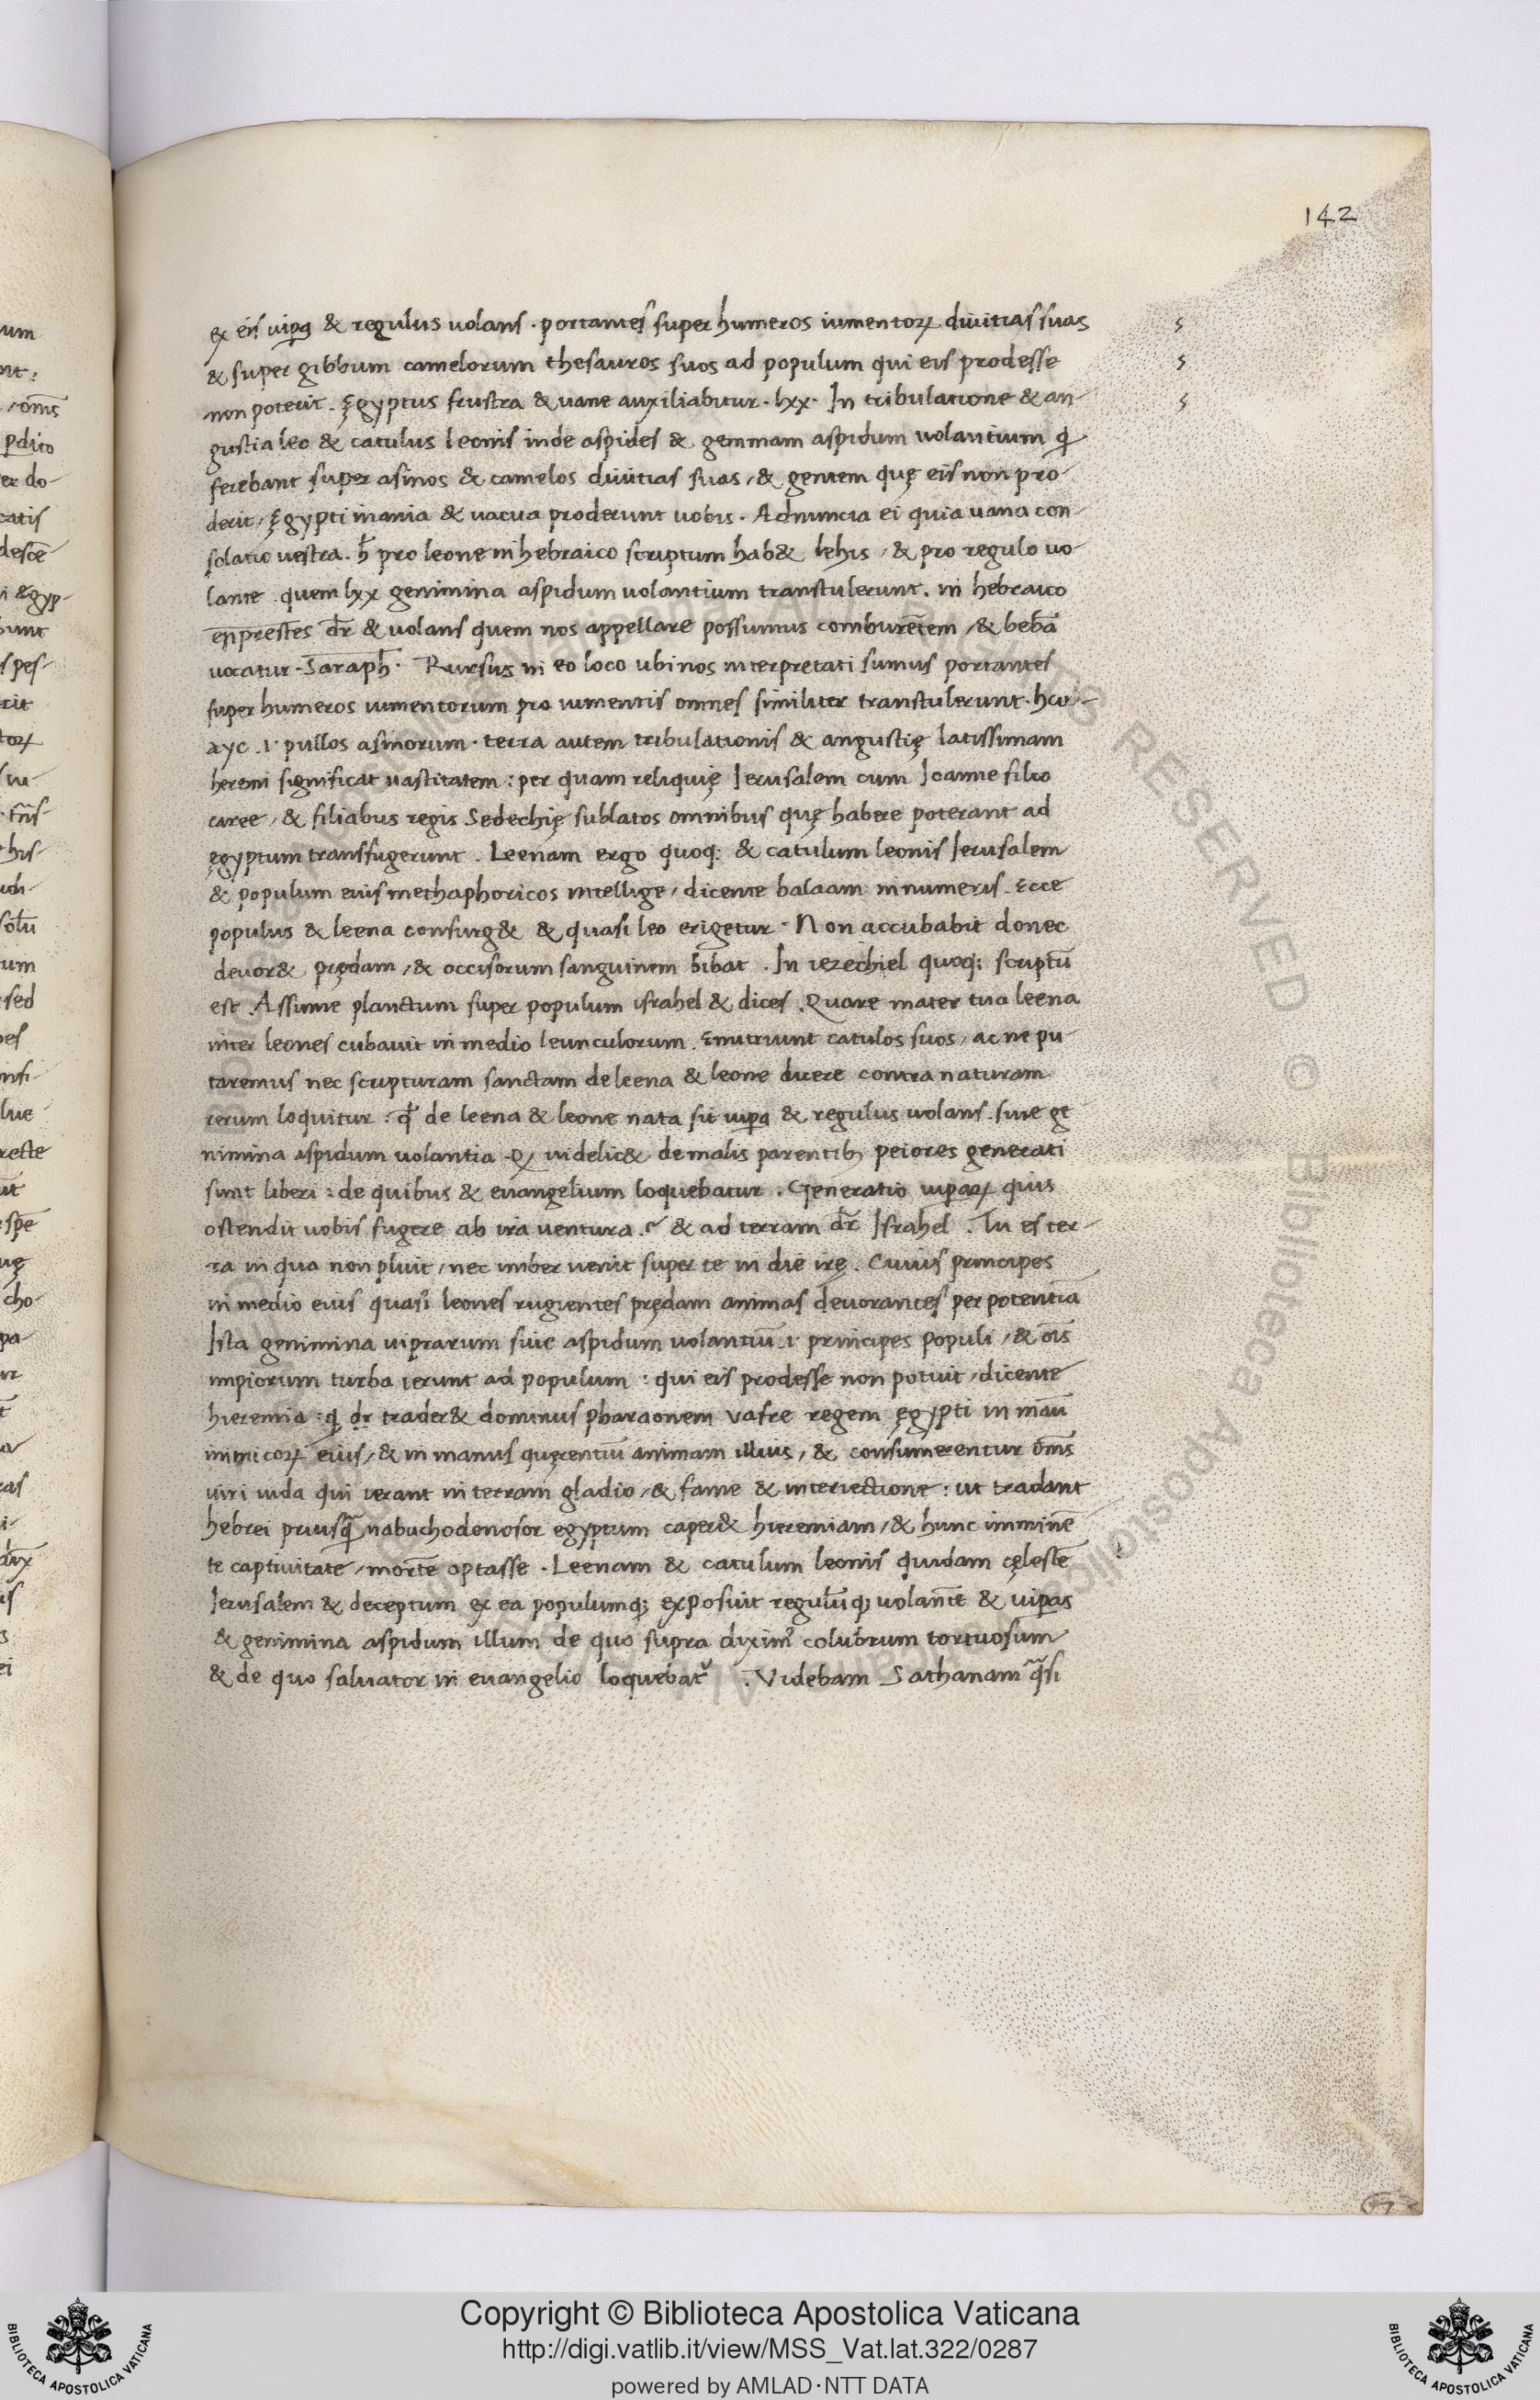 142
ex eis uiꝑa & regulus uolans . portantes super humeros iumentoꝝ diuitias suas
& super gibbum camelorum thesauros suos ad populum qui eis prodesse
non poterit . Ęgyptus frustra & uane auxiliabitur . lxx . In tribulatione & an-
gustia leo & catulus leonis inde aspides & gemmam aspidum uolantium q
ferebant super asinos & camelos diuitias suas , & gentem quę eis non pro-
derit , Ęgypti inania & uacua proderunt uobis . Adnuncia ei quia uana con-
solatio uestra . h̄ pro leone in hebraico scriptum hab& lehis , & pro regulo uo-
lante . quem lxx genimina aspidum uolantium transtulerunt . in hebraico
enp̄restes dr̄ & uolans quem nos appellare possumus comburētem , & beb̄a
uocatur . Saraph̄ . Rursus in eo loco ubi nos interpretati sumus portantes
super humeros iumentorum pro iumentis omnes similiter transtulerunt . hco-
ayc . i . pullos asinorum . terra autem tribulationis & angustię latissimam
heremi significat uastitatem : per quam reliquię Ierusalem cum Ioanne filio
caree , & filiabus regis Sedechię sublatos omnibus quę habere poterant ad
ęgyptum transfugerunt . Leenam ergo quoq; & catulum leonis Ierusalem
& populum eius methaphoricos intellige , dicente balaam in numeris . Ecce
populus & leena consurg& & quasi leo erigetur . Non accubabit donec
deuor& prędam , & occisorum sanguinem bibat . In iezechiel quoq; scriptū
est . Assume planctum super populum israhel & dices . Quare mater tua leena
inter leones cubauit in medio leunculorum . Enutriunt catulos suos , ac ne pu-
taremus nec scrupturam sanctam de leena & leone dicere contra naturam
rerum loquitur : qd de leena & leone nata sit uiꝑa & regulus uolans . siue ge
nimina aspidum uolantia . Qꝫ uidelic& de malis parentibꝫ peiores generati
sunt liberi : de quibus & euangelium loquebatur . Generatio uiꝑaꝝ quis
ostendit uobis fugere ab ira uentura .? & ad terram dr̄ Israhel . Tu es ter-
ra in qua non pluit , nec imber uenit super te in die irę . Cuius principes
in medio eius quasi leones rugientes prędam animas deuorantes per potentiā
Ista genimina uiꝑrarum siue aspidum uolantiū . i . principes populi , & oīs
impiorum turba ierunt ad populum : qui eis prodesse non potuit , dicente
hieremia : q dr trader& dominus pharaonem vafre regem ęgypti in manū
inimicoꝝ eius , & in manus quęrentiū animam illius , & consumerentur om̄s
uiri iuda qui ierant in terram gladio , & fame & interiectione : ut tradant
hebrei priusq̄ nabuchodonosor egyptum caper& hieremiam , & hunc imminē
te captiuitate , mortē optasse . Leenam & catulum leonis quidam cęlestē
Ierusalem & deceptum ex ea populumq; exposuit regulūq; uolantē & uiꝑas
& genimina aspidum illum de quo supra dixim' colubrum tortuosum
& de quo saluator in euangelio loquebat' . Videbam Sathanam q̄si
Copyright © Biblioteca Apostolica Vaticana
http://digi.vatlib.it/view/MSS_Vat.lat.322/0287
powered by AMLAD·NTT DATA